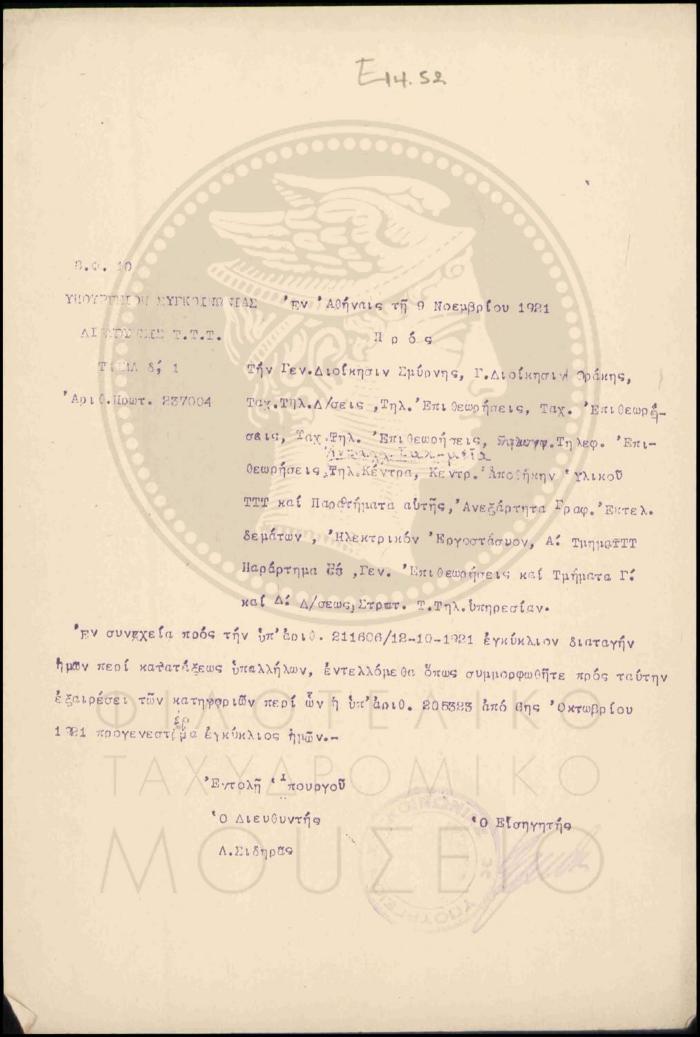 Ε14.52
Β.Φ. 10
ΥΠΟΥΡΓΕΙΟΝ ΣΥΓΚΟΙΝΩΝΙΑΣ
ΔΙΕΥΘΥΝΣΙΣ Τ.Τ.Τ.
ΤΜΗΜΑ δ; 1
Ἀριθ.Πρωτ. 237004
Ἐν Ἀθήναις τῇ 9 Νοεμβρίου 1921
Π ρ ό ς
Τήν Γεν.Διοίκησιν Σμύρνης, Γ.Διοίκησιν Θράκης,
Ταχ.Τηλ.Δ/σεις ,Τηλ.Ἐπιθεωρήσεις, Ταχ. Ἐπιθεωρή-
σεις, Ταχ.Τηλ. Ἐπιθεωρήσεις, Τηλεφ. Ἐπι-
θεωρήσεις,Τηλ.Κέντρα, Κεντρ.Ἀποθήκην Ὑλικοῦ
ΤΤΤ καί Παραρτήματα αὐτῆς,Ἀνεξάρτητα Γραφ.Ἐκτελ.
δεμάτων , Ἠλεκτρικόν Ἐργοστάσυον, Α! ΤμημαΤΤΤ
Παράρτημα ,Γεν. Ἐπιθεωρήσεις καί Τμήματα Γ!
καί Δ! Δ/σεως,Στρωτ. Τ.Τηλ.ὑπηρεσίαν.
Ἐν συνεχεία πρός τήν ὑπ'ἀριθ. 211606/12-10-1921 ἐγκύκλιον διαταγήν
ἡμῶν περί κατατάξεως ὑπαλλήλων, ἐντελλόμεθα ὅπως συμμορφωθῆτε πρός ταύτην
ἐξαιρέσει τῶν κατηγοριῶν περί ὧν ἡ ὑπ'ἀριθ. 205323 ἀπό 6ης Ὀκτωβρίου
1921 προγενεστέρα ἐγκύκλιος ἡμῶν.-
Ἐντολῇ Ὑπουργοῦ
Ὁ Διευθυντής
Ὁ Εἰσηγητής
Λ.Σιδηρᾶς
ΦΙΛΟΤΕΛΙΚΟ
ΤΑΧΥΔΡΟΜΙΚΟ
ΜΟΥΣΕΙΟ